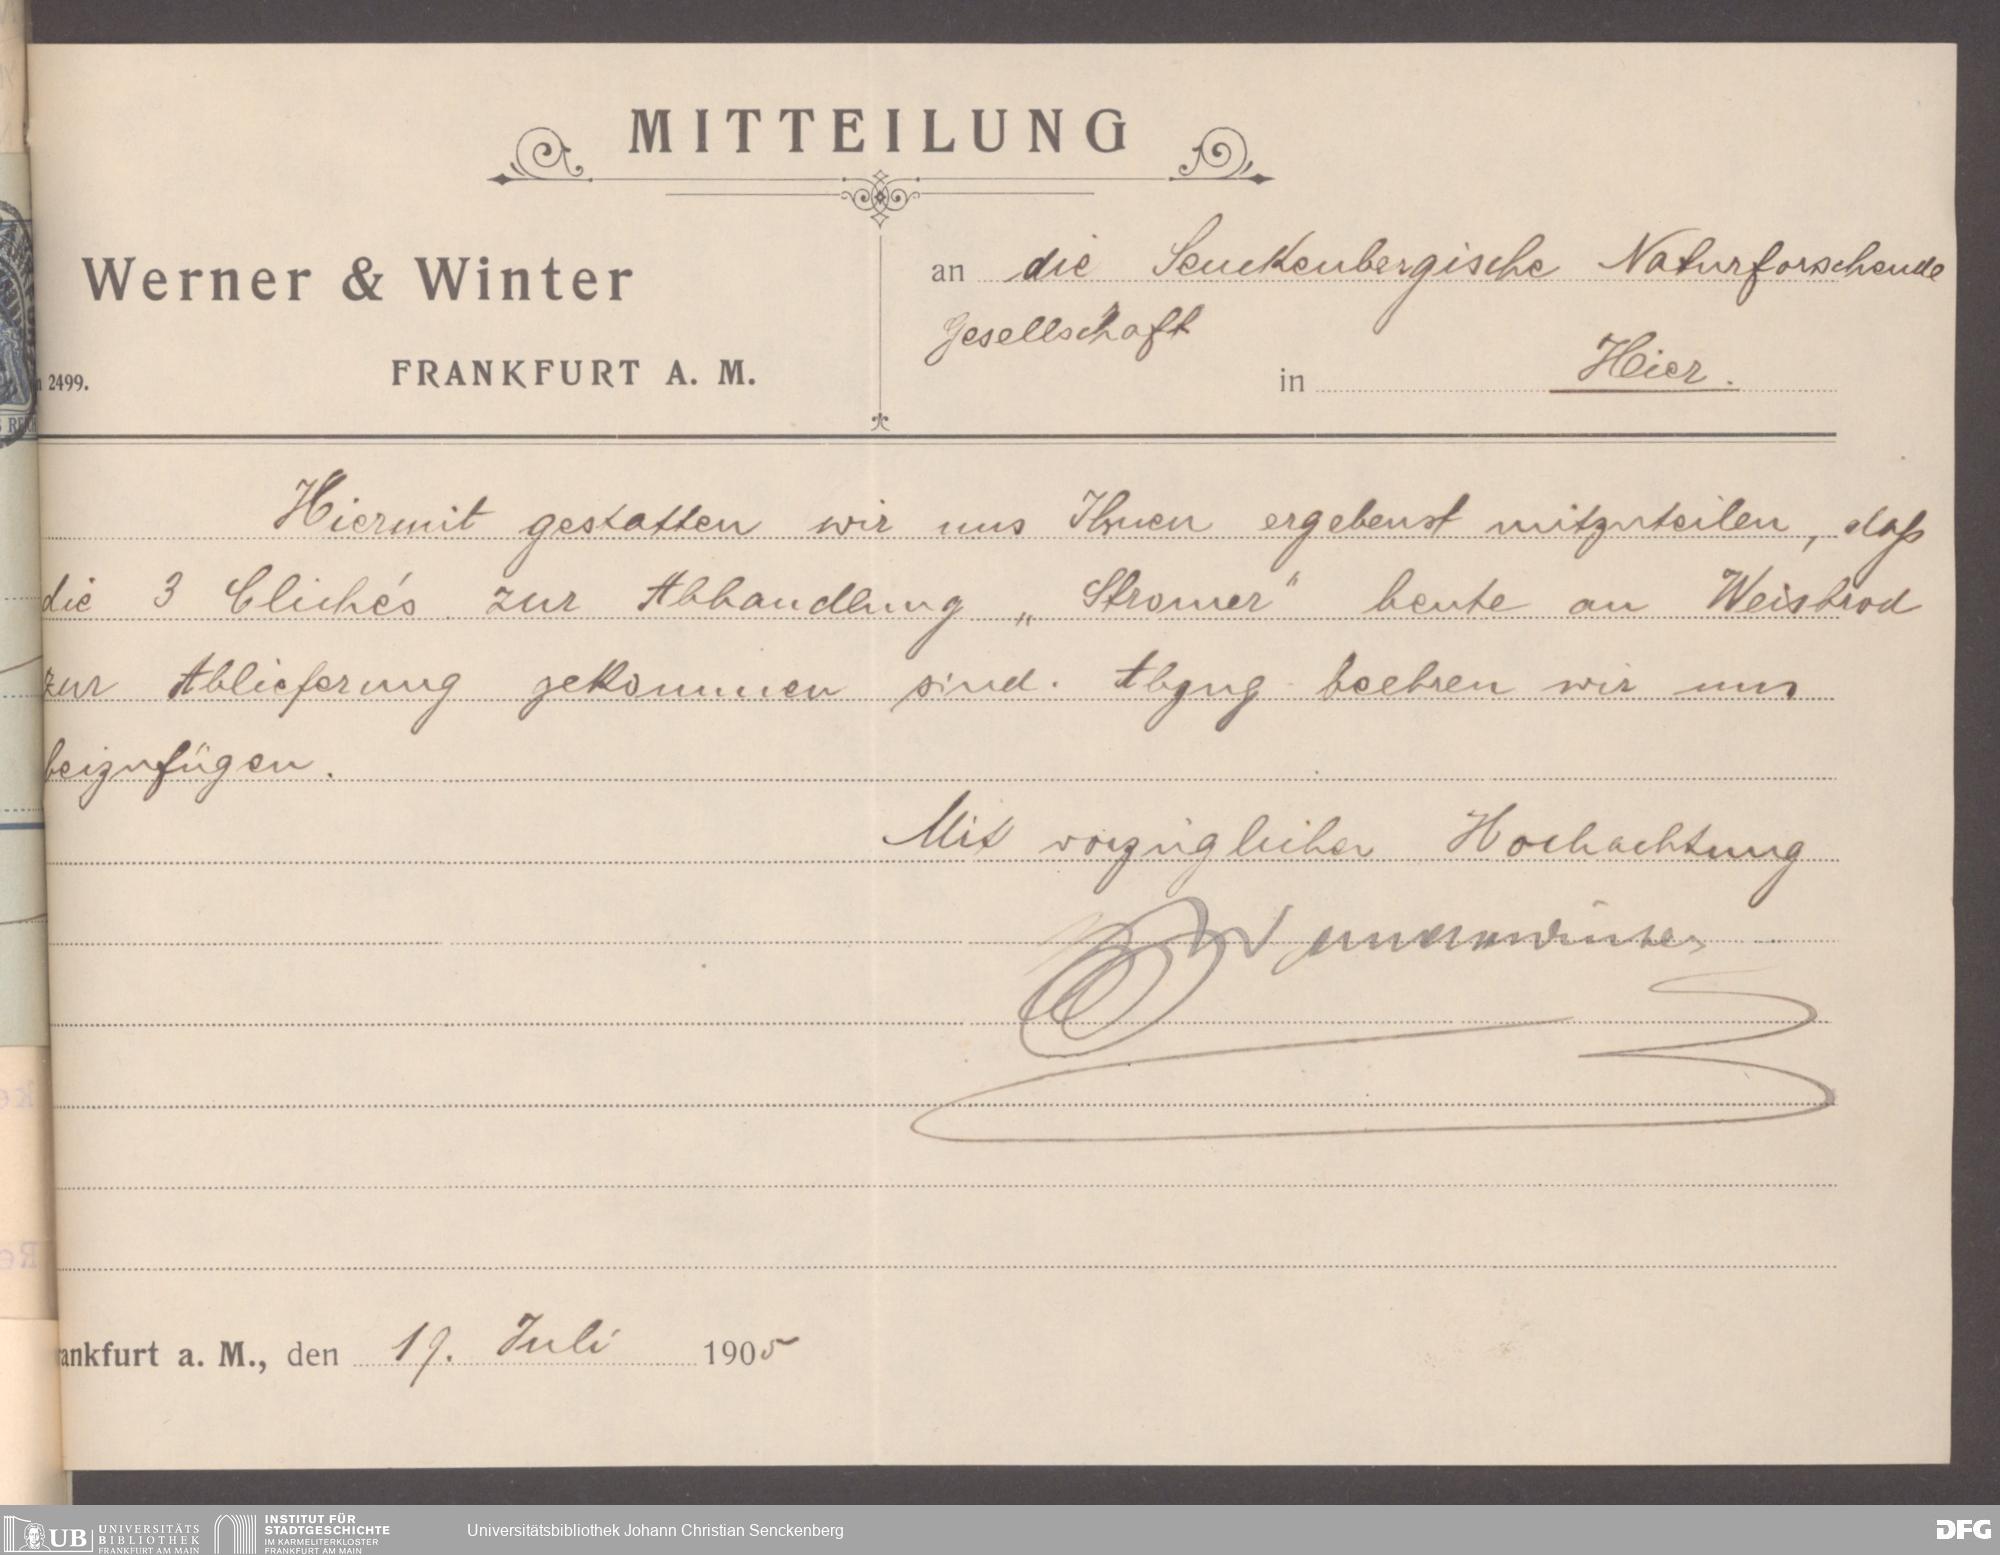 MITTEILUNG
Werner & Winter
an die Senckenbergische Naturforschende
Gesellschaft
2499.
FRANKFURT A. M.
in Hier.
Hiermit gestatten wir uns Ihnen ergebenst mitzuteilen, daß
die 3 Clichés zur Abhandlung „Stromer" heute an Weisbrod
zur Ablieferung gekommen sind. Abzug beehren wir uns
beizufügen.
Mit vorzüglicher Hochachtung
Werner u Winter
ankfurt a. M., den 19. Juli 1905
UB UNIVERSITÄTS
BIBLIOTHEK
FRANKFURT AM MAIN
INSTITUT FÜR
STADTGESCHICHTE
IM KARMELITERKLOSTER
FRANKFURT AM MAIN
Universitätsbibliothek Johann Christian Senckenberg
DFG